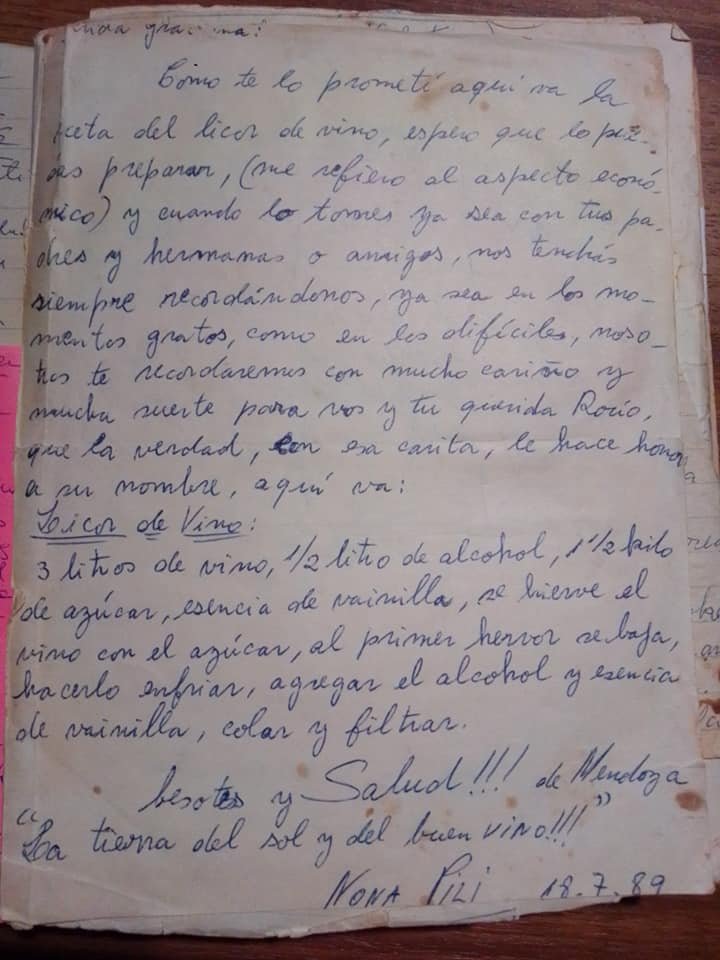 Como te lo prometí aquí va la
ceta del licor de vino, espero que lo pue-
das preparar, (me refiero al aspecto econó-
mico) y cuando lo tomes ya sea con tus pa-
dres y hermanas o amigos, nos tendrás
siempre recordándonos, ya sea en los mo-
mentos gratos, como en los difíciles, noso-
tros te recordaremos con mucho cariño y
mucha suerte para vos y tu querida Rocío,
que la verdad, con esa carita, le hace honor
a su nombre, aquí va:
Licor de Vino:
3 litros de vino, 1/2 litro de alcohol, 1 1/2 kilo
de azúcar, esencia de vainilla, se hierve el
vino con el azúcar, al primer hervor se baja,
hacerlo enfriar, agregar el alcohol y esencia
de vainilla, colar y filtrar.
besotes y Salud!!! de Mendoza
"La tierra del sol y del buen vino!!!"
NONA PILI 18.7.89